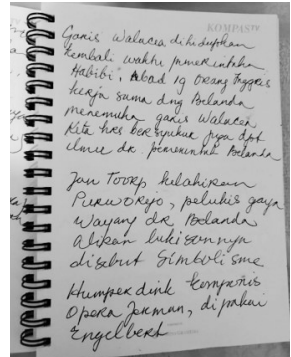 KOMPASTV
Garis Walacea dihidupkan
kembali waktu pemerintahan
Habibi, Abad 19 orang Inggris
kerja sama dng Belanda
menemukan garis Walacea
Kita hrs bersyukur juga dpt
ilmu dr. pemerintah Belanda
Jan Toorp kelahiran
Purworejo, pelukis gaya
Wayang dr Belanda
Aliran lukisannya
disebut Simbolisme
Humperdink komponis
Opera Jerman, dipakai
Engelbert